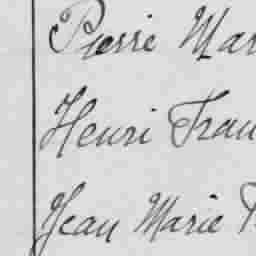 Pierre Mar
Henri Fran
Jean Marie